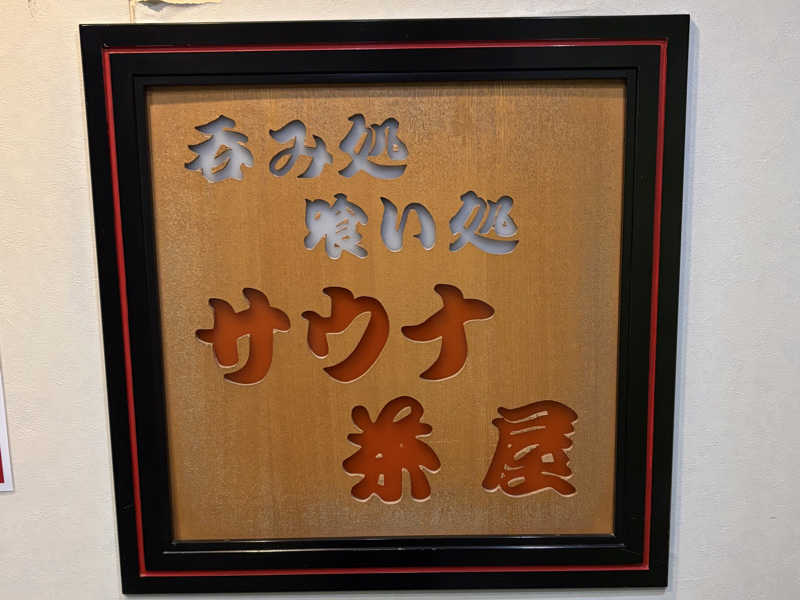 呑み処
喰い処
サウナ
茶屋